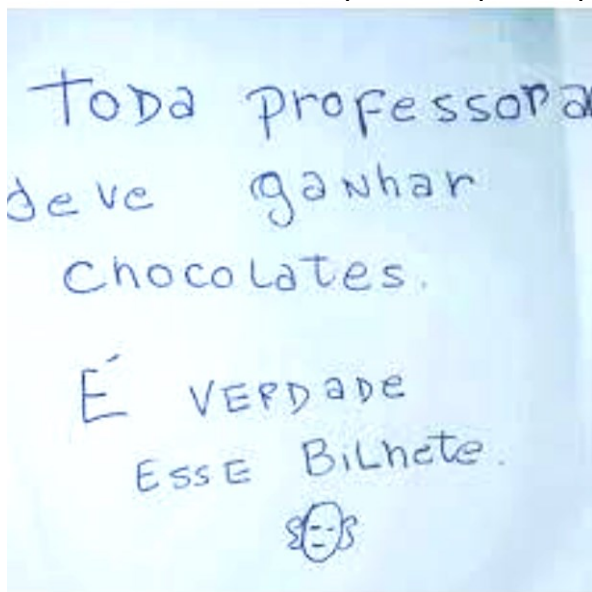 Toda professora
deve ganhar
chocolates.
É VERDADE
ESSE BiLhete.